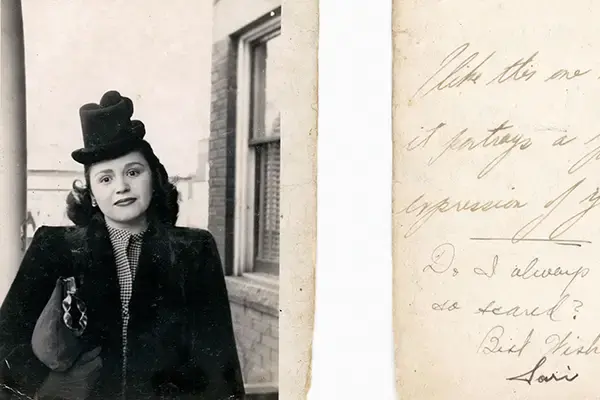 I like this one
it portrays a
expression of
Do I always
so scared?
Best Wish
Sari